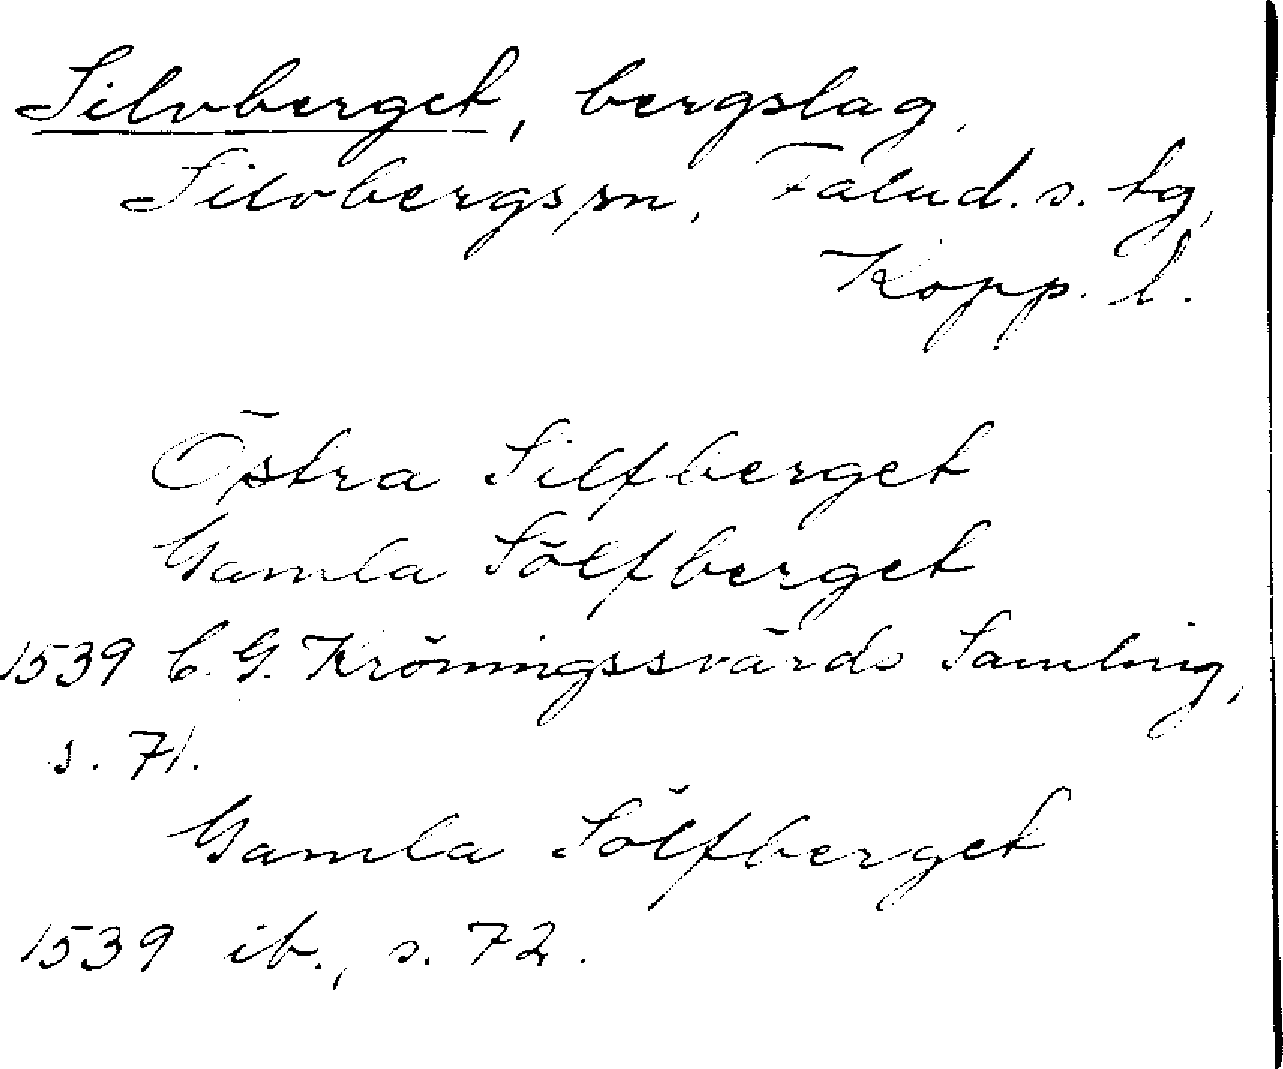 Silvberget, bergslag,
Silvbergs sn, Falud. s. tg,
Kopp. l.
Östra Silfberget
Gamla Sölfberget
1539 C. G. Kröningssvärds Samling,
s. 71.
Gamla Sölfberget
1539 ib., s. 72.